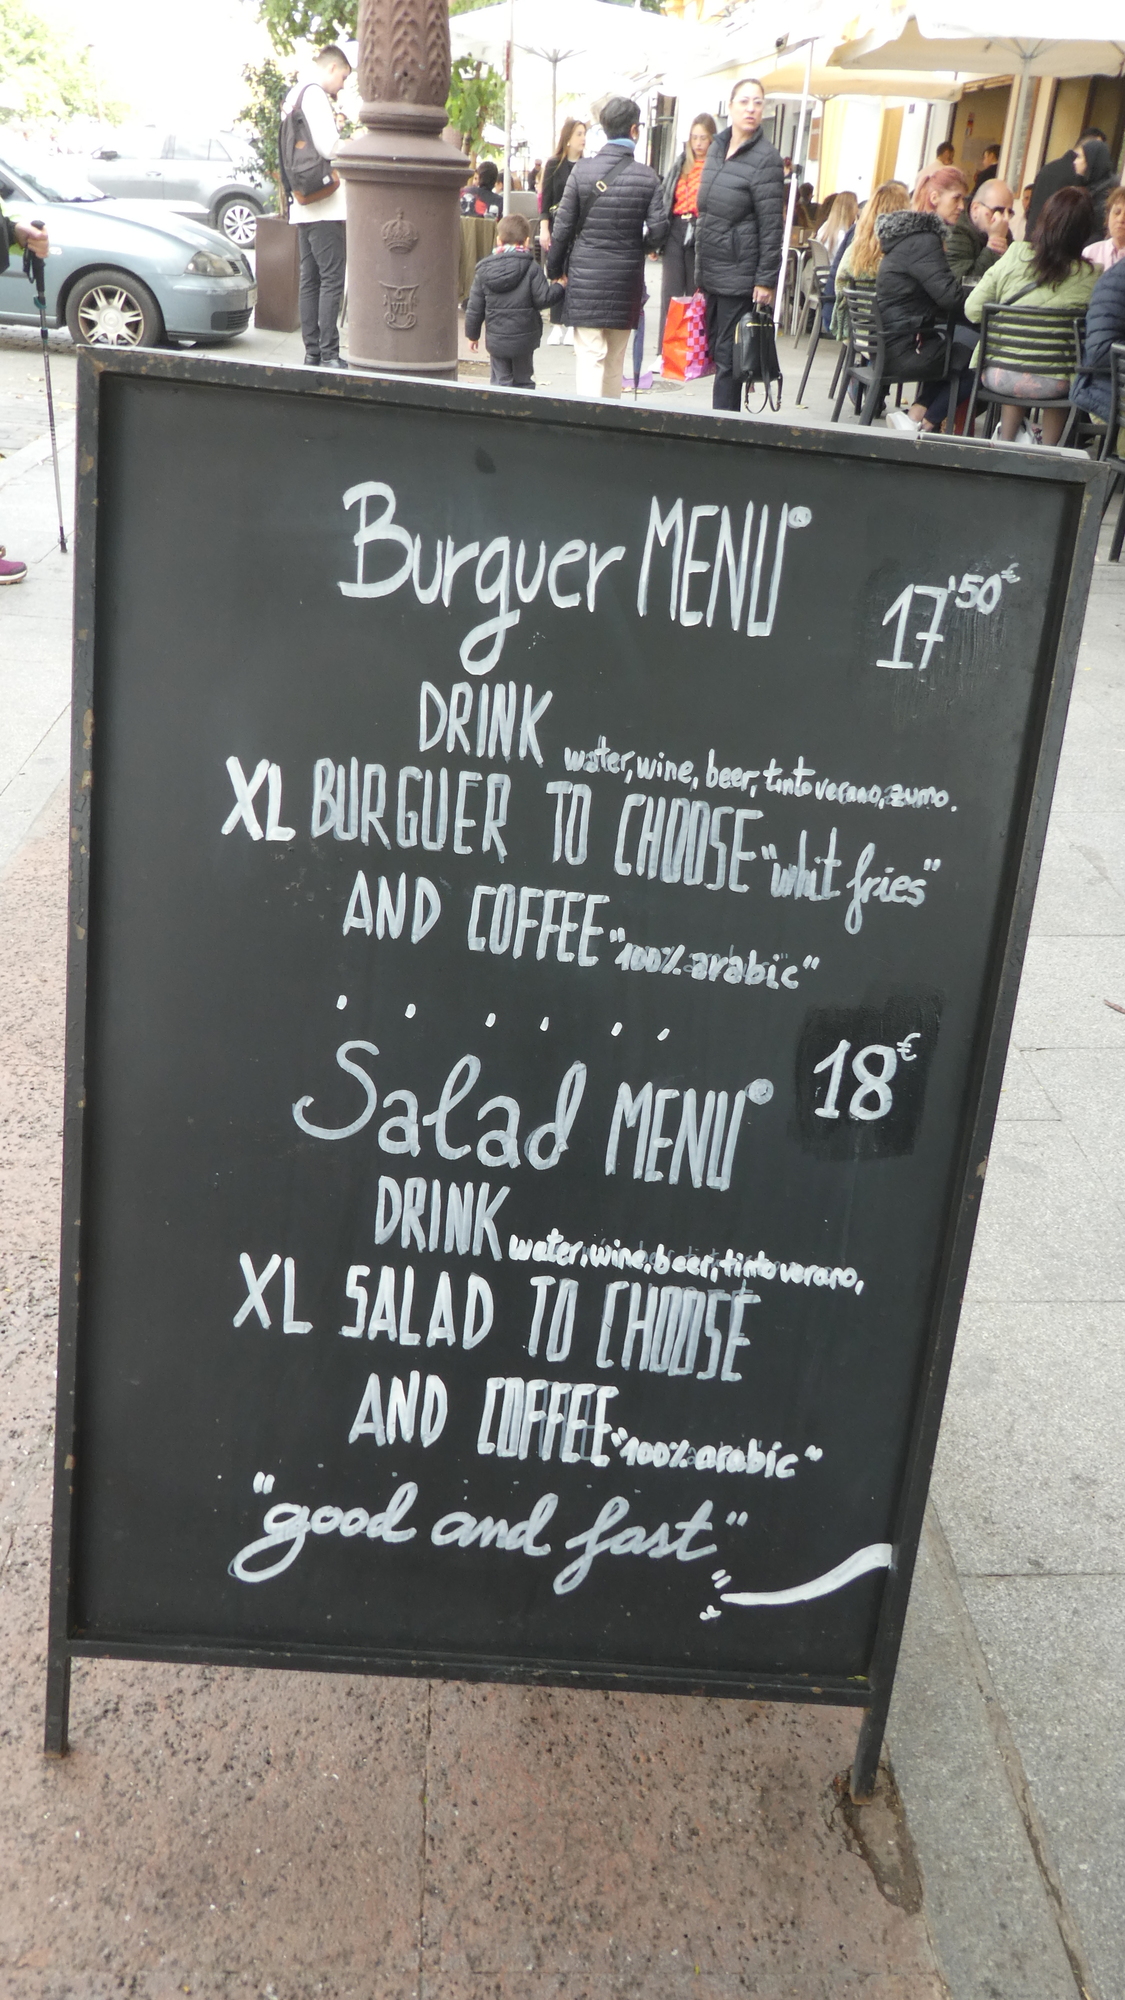 Burguer MENU
17'50€
DRINK water, wine, beer, tinto verano, zumo.
XL BURGUER TO CHOOSE "whit fries"
AND COFFEE "100% arabic"
......
Salad MENU
18€
DRINK water, wine, beer, tinto verano,
XL SALAD TO CHOOSE
AND COFFEE "100% arabic"
"good and fast"